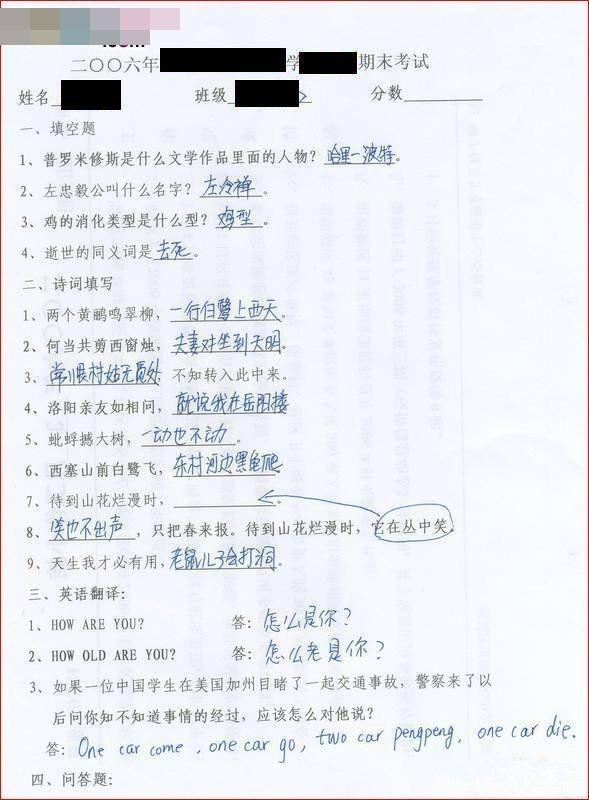 二〇〇六年 学 期末考试
姓名 班级 分数
一、填空题
1、普罗米修斯是什么文学作品里面的人物？哈里一波特。
2、左忠毅公叫什么名字？左冷禅。
3、鸡的消化类型是什么型？鸡型。
4、逝世的同义词是去死。
二、诗词填写
1、两个黄鹂鸣翠柳，一行白鹭上西天。
2、何当共剪西窗烛，夫妻对坐到天明。
3、常恨村姑无觅处，不知转入此中来。
4、洛阳亲友如相问，就说我在岳阳楼
5、蚍蜉撼大树，一动也不动。
6、西塞山前白鹭飞，东村河边黑龟爬
7、待到山花烂漫时，
8、笑也不出声，只把春来报。待到山花烂漫时，它在丛中笑。
9、天生我才必有用，老鼠儿子会打洞。
三、英语翻译：
1、HOW ARE YOU? 答：怎么是你？
2、HOW OLD ARE YOU? 答：怎么老是你？
3、如果一位中国学生在美国加州目睹了一起交通事故，警察来了以
后问你知不知道事情的经过，应该怎么对他说？
答：One car come, one car go, two car pengpeng, one car die.
四、问答题：